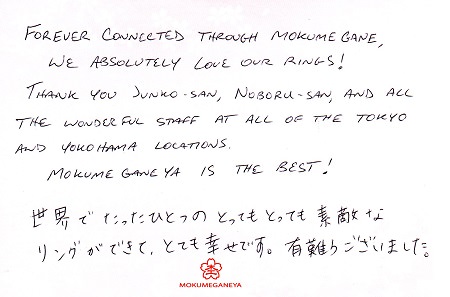 FOREVER CONNECTED THROUGH MOKUME GANE,
WE ABSOLUTELY LOVE OUR RINGS!
THANK YOU JUNKO-SAN, NOBORU-SAN, AND ALL
THE WONDERFUL STAFF AT ALL OF THE TOKYO
AND YOKOHAMA LOCATIONS.
MOKUME GANEYA IS THE BEST!
世界でたったひとつのとってもとっても素敵な
リングができて、とても幸せです。有難うございました。
MOKUMEGANEYA